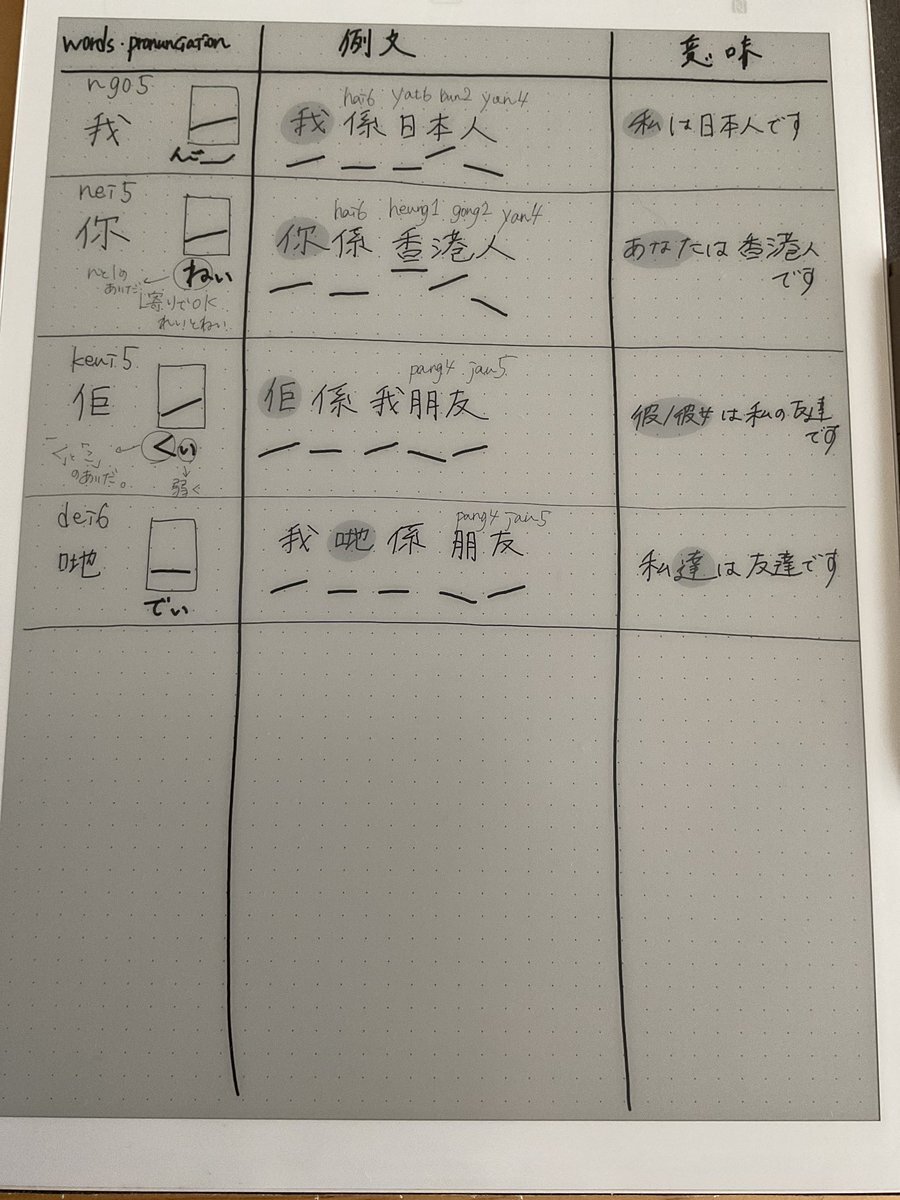 words・pronunciation
例文
意味
ngo5
我
んごー
hai6 yat6 bun2 yan4
我係日本人
私は日本人です
nei5
你
ねい
nとlの
あいだ
L寄りでOK
れいとねい
hai6 heung1 gong2 yan4
你係香港人
あなたは香港人
です
keui5
佢
くい
「く」と「こ」
のあいだ。
弱く
pang4 jau5
佢係我朋友
彼/彼女は私の友達
です
dei6
哋
でい
pang4 jau5
我哋係朋友
私達は友達です